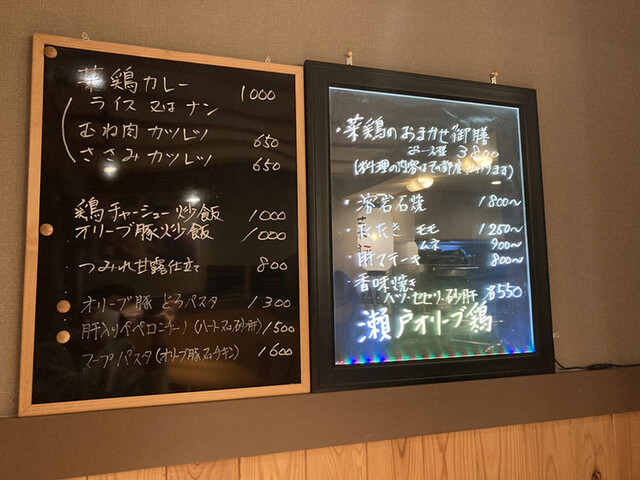 葉鶏カレー 1000
ライス 又は ナン
むね肉 カツレツ 650
ささみ カツレツ 650
鶏チャーシュー炒飯 1000
オリーブ豚炒飯 1000
つみれ甘露仕立て 800
オリーブ豚 どろパスタ 1300
肝入りペペロンチーノ(ハート 又は 砂肝) 1500
スープパスタ(オリーブ豚 チキン) 1600
・葉鶏のおまかせ御膳
お一人様 3800
(料理の内容はその都度ります)
・溶岩石焼 1800〜
・たたき モモ 1250〜
ムネ 900〜
・肝ステーキ 800〜
・香味焼き
ハツ・セセリ・砂肝 各550
瀬戸オリーブ鶏